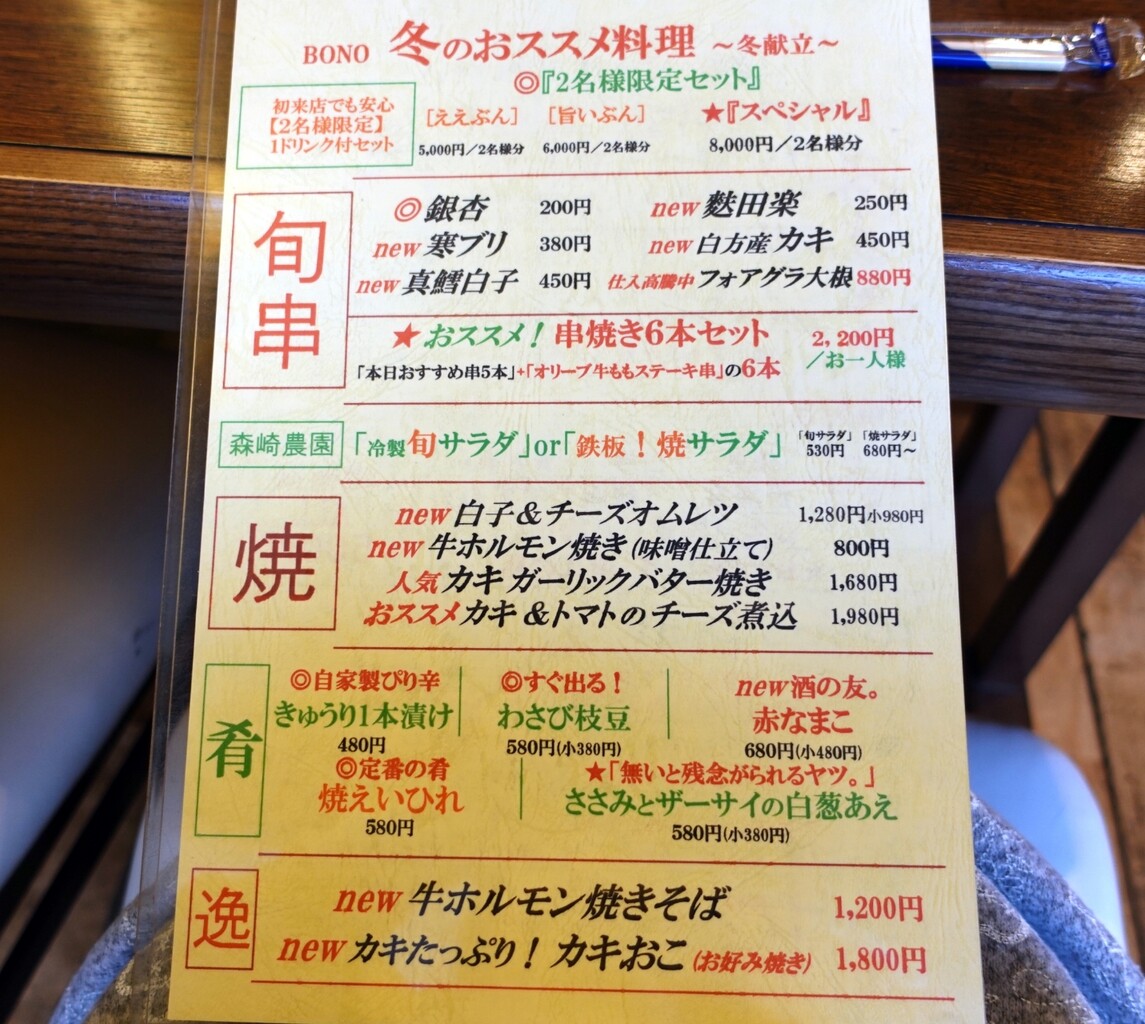 BONO 冬のおススメ料理 ～冬献立～
◎『2名様限定セット』
初来店でも安心
【2名様限定】
1ドリンク付セット
［ええぶん］ ［旨いぶん］ ★『スペシャル』
5,000円／2名様分 6,000円／2名様分 8,000円／2名様分
旬串
◎銀杏 200円 new 麩田楽 250円
new 寒ブリ 380円 new 白方産 カキ 450円
new 真鱈白子 450円 仕入高騰中 フォアグラ大根 880円
★おススメ！ 串焼き6本セット 2,200円
「本日おすすめ串5本」+「オリーブ牛ももステーキ串」の6本 ／お一人様
森崎農園 「冷製 旬サラダ」or「鉄板！焼サラダ」 「旬サラダ」 「焼サラダ」
530円 680円～
焼
new 白子＆チーズオムレツ 1,280円小980円
new 牛ホルモン焼き（味噌仕立て） 800円
人気 カキ ガーリックバター焼き 1,680円
おススメ カキ ＆トマトの チーズ煮込 1,980円
肴
◎自家製ぴり辛 ◎すぐ出る！ new 酒の友。
きゅうり1本漬け わさび枝豆 赤なまこ
480円 580円(小380円) 680円(小480円)
◎定番の肴 ★「無いと残念がられるヤツ。」
焼えいひれ ささみとザーサイの白葱あえ
580円 580円(小380円)
逸
new 牛ホルモン焼きそば 1,200円
new カキたっぷり！ カキおこ（お好み焼き） 1,800円